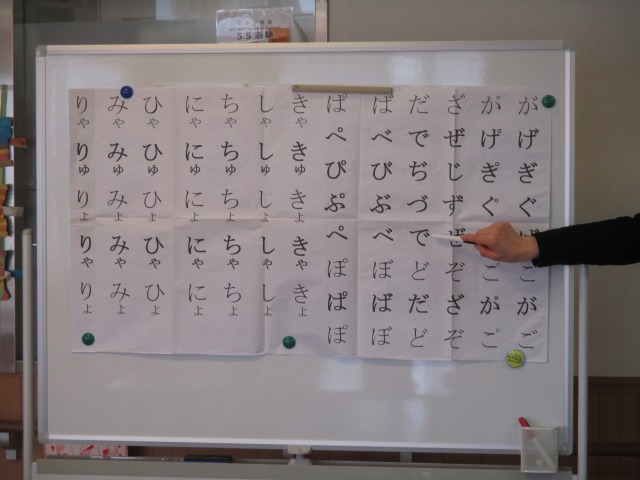 がげぎぐげごがご
がげぎぐごがご
ざぜじずぜぞざぞ
だでぢづでどだど
ばべびぶべぼばぼ
ぱぺぴぷぺぽぱぽ
きゃきゅきょきゃきょ
しゃしゅしょしゃしょ
ちゃちゅちょちゃちょ
にゃにゅにょにゃにょ
ひゃひゅひょひゃひょ
みゃみゅみょみゃみょ
りゃりゅりょりゃりょ